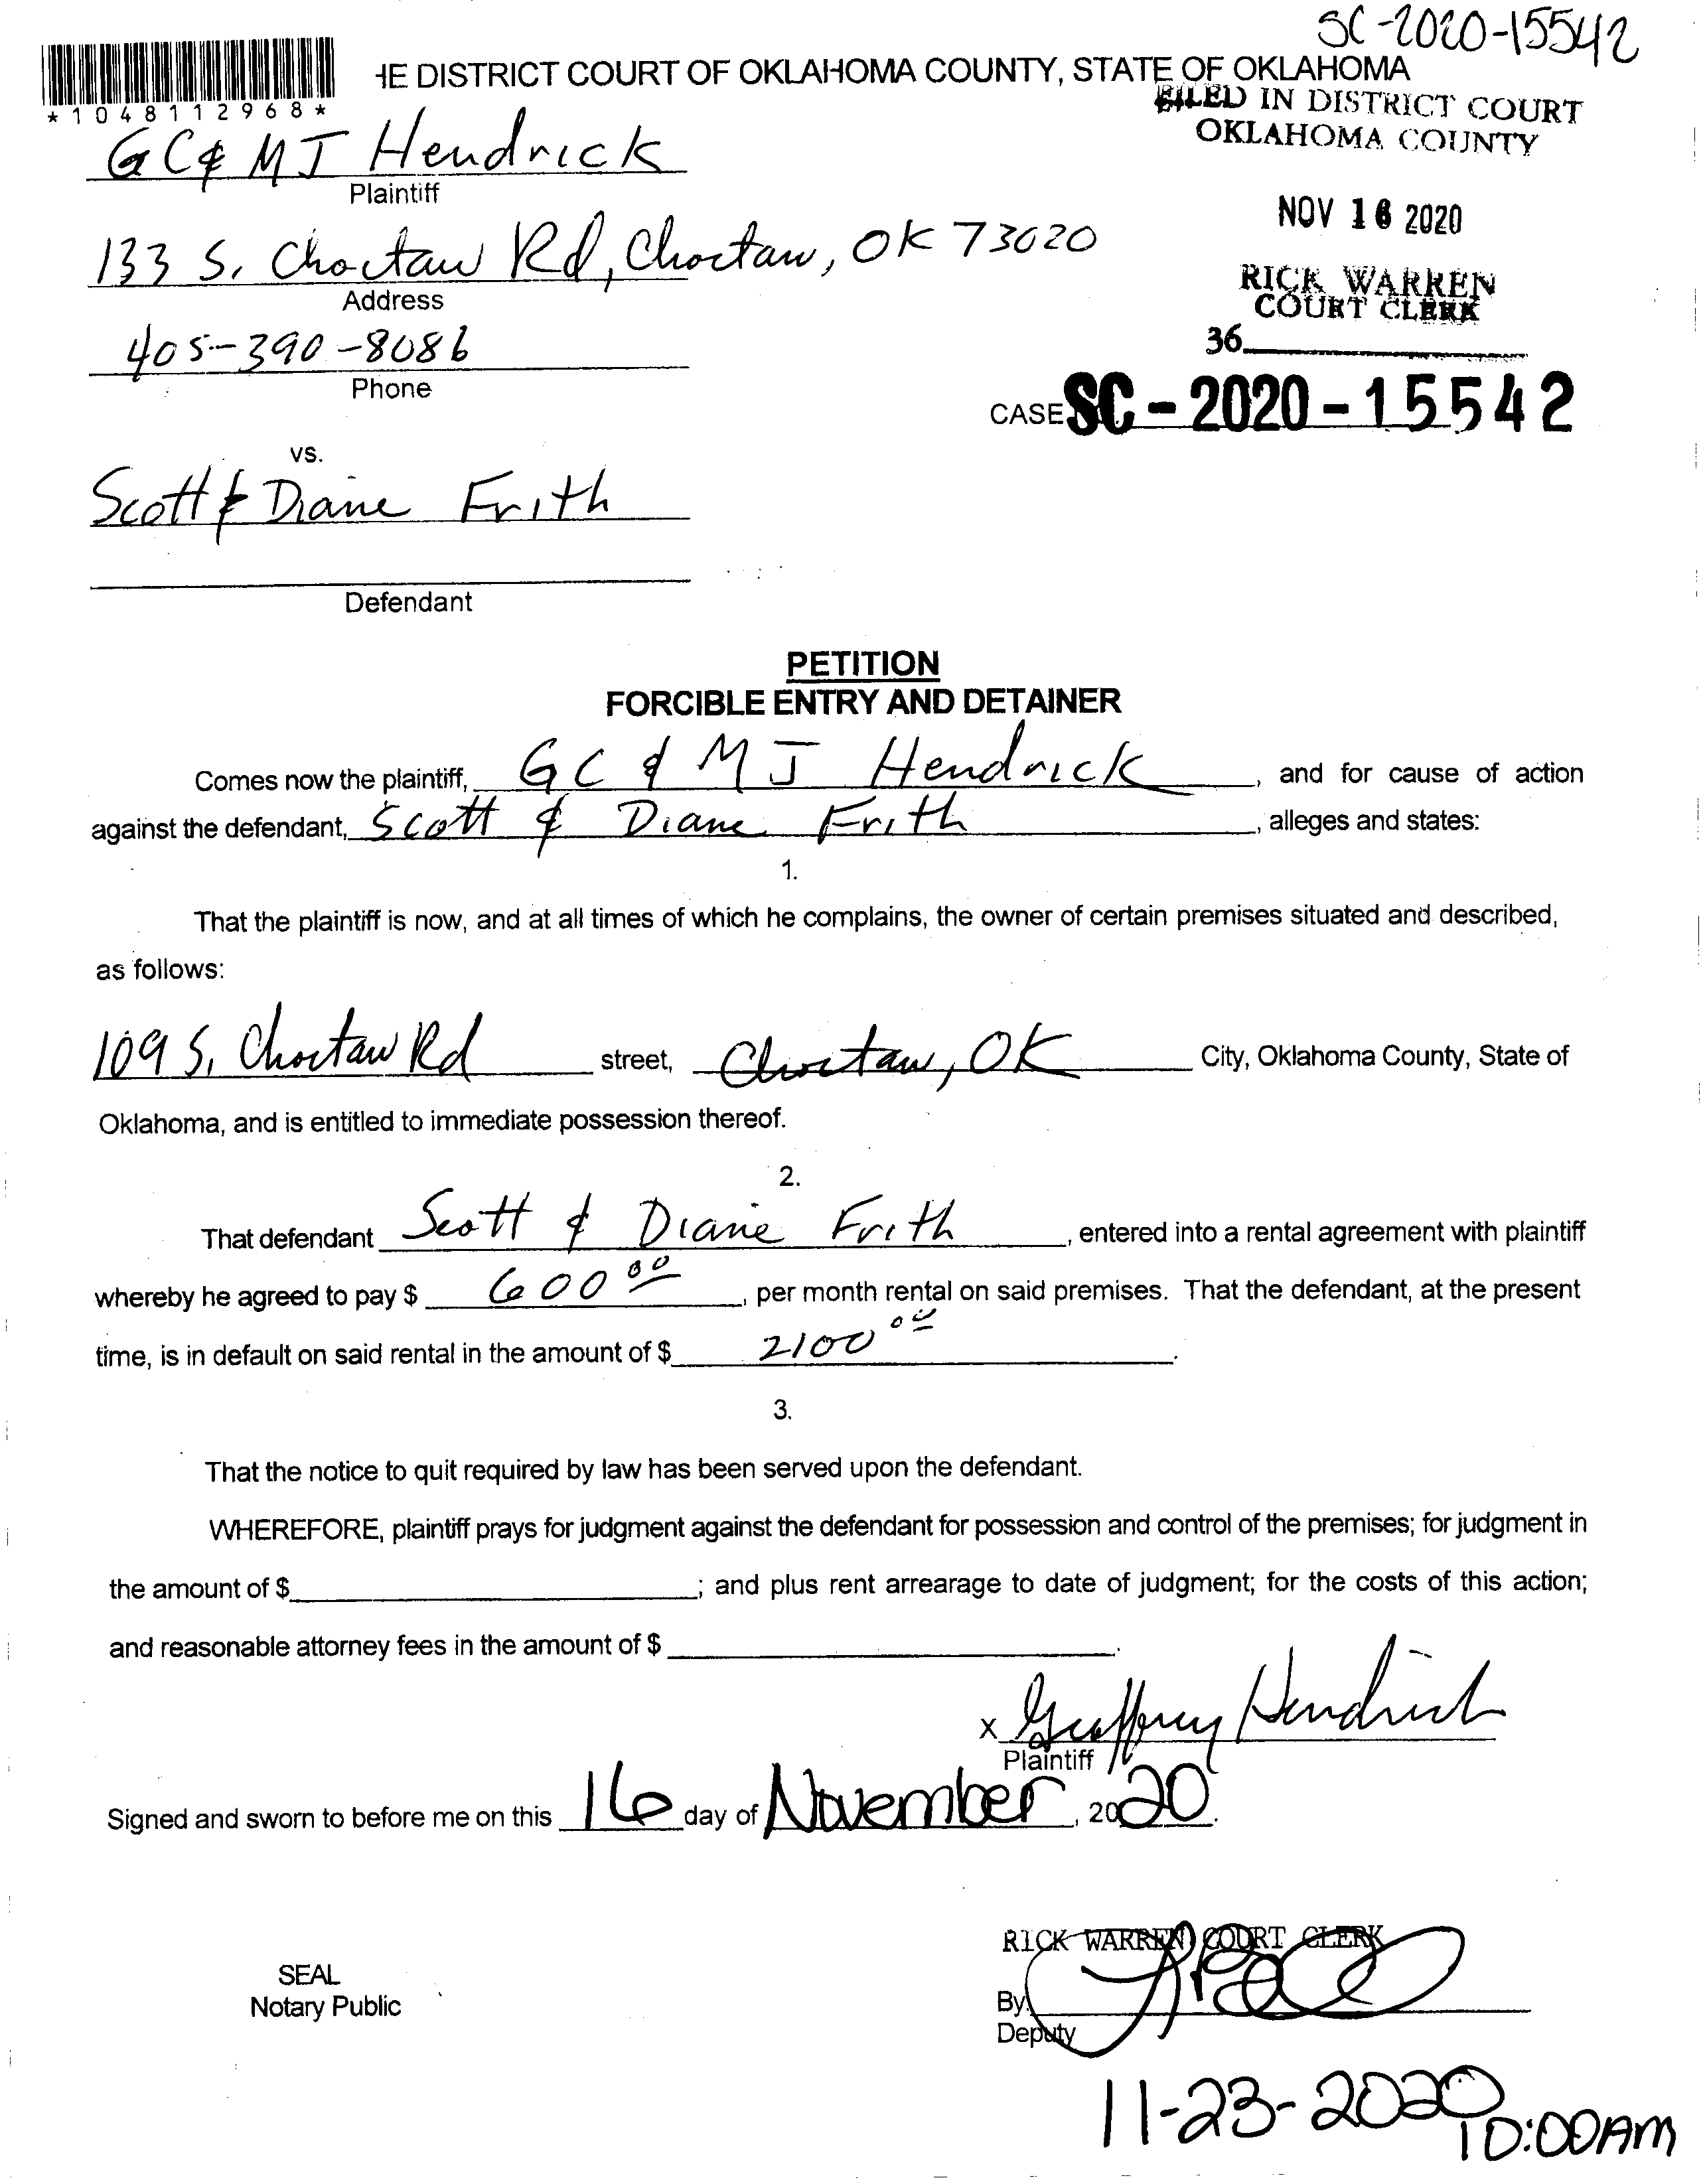 SC-2020-15542
HE DISTRICT COURT OF OKLAHOMA COUNTY, STATE OF OKLAHOMA
*1048112968*
FILED IN DISTRICT COURT
OKLAHOMA COUNTY
GC & MJ Hendrick
Plaintiff
NOV 16 2020
133 S. Choctaw Rd, Choctaw, OK 73020
Address
RICK WARREN
COURT CLERK
405-390-8086
36
Phone
CASE SC-2020-15542
vs.
Scott & Diane Frith
Defendant
PETITION
FORCIBLE ENTRY AND DETAINER
Comes now the plaintiff, GC & MJ Hendrick, and for cause of action
against the defendant, Scott & Diane Frith, alleges and states:
1.
That the plaintiff is now, and at all times of which he complains, the owner of certain premises situated and described,
as follows:
109 S. Choctaw Rd street, Choctaw, OK City, Oklahoma County, State of
Oklahoma, and is entitled to immediate possession thereof.
2.
That defendant Scott & Diane Frith, entered into a rental agreement with plaintiff
whereby he agreed to pay $ 600 00, per month rental on said premises. That the defendant, at the present
time, is in default on said rental in the amount of $ 2100 00.
3.
That the notice to quit required by law has been served upon the defendant.
WHEREFORE, plaintiff prays for judgment against the defendant for possession and control of the premises; for judgment in
the amount of $; and plus rent arrearage to date of judgment; for the costs of this action;
and reasonable attorney fees in the amount of $.
x Geoffrey Hendrick
Plaintiff
Signed and sworn to before me on this 16 day of November, 2020.
RICK WARREN COURT CLERK
SEAL
Notary Public
By
Deputy
11-23-2020
10:00AM